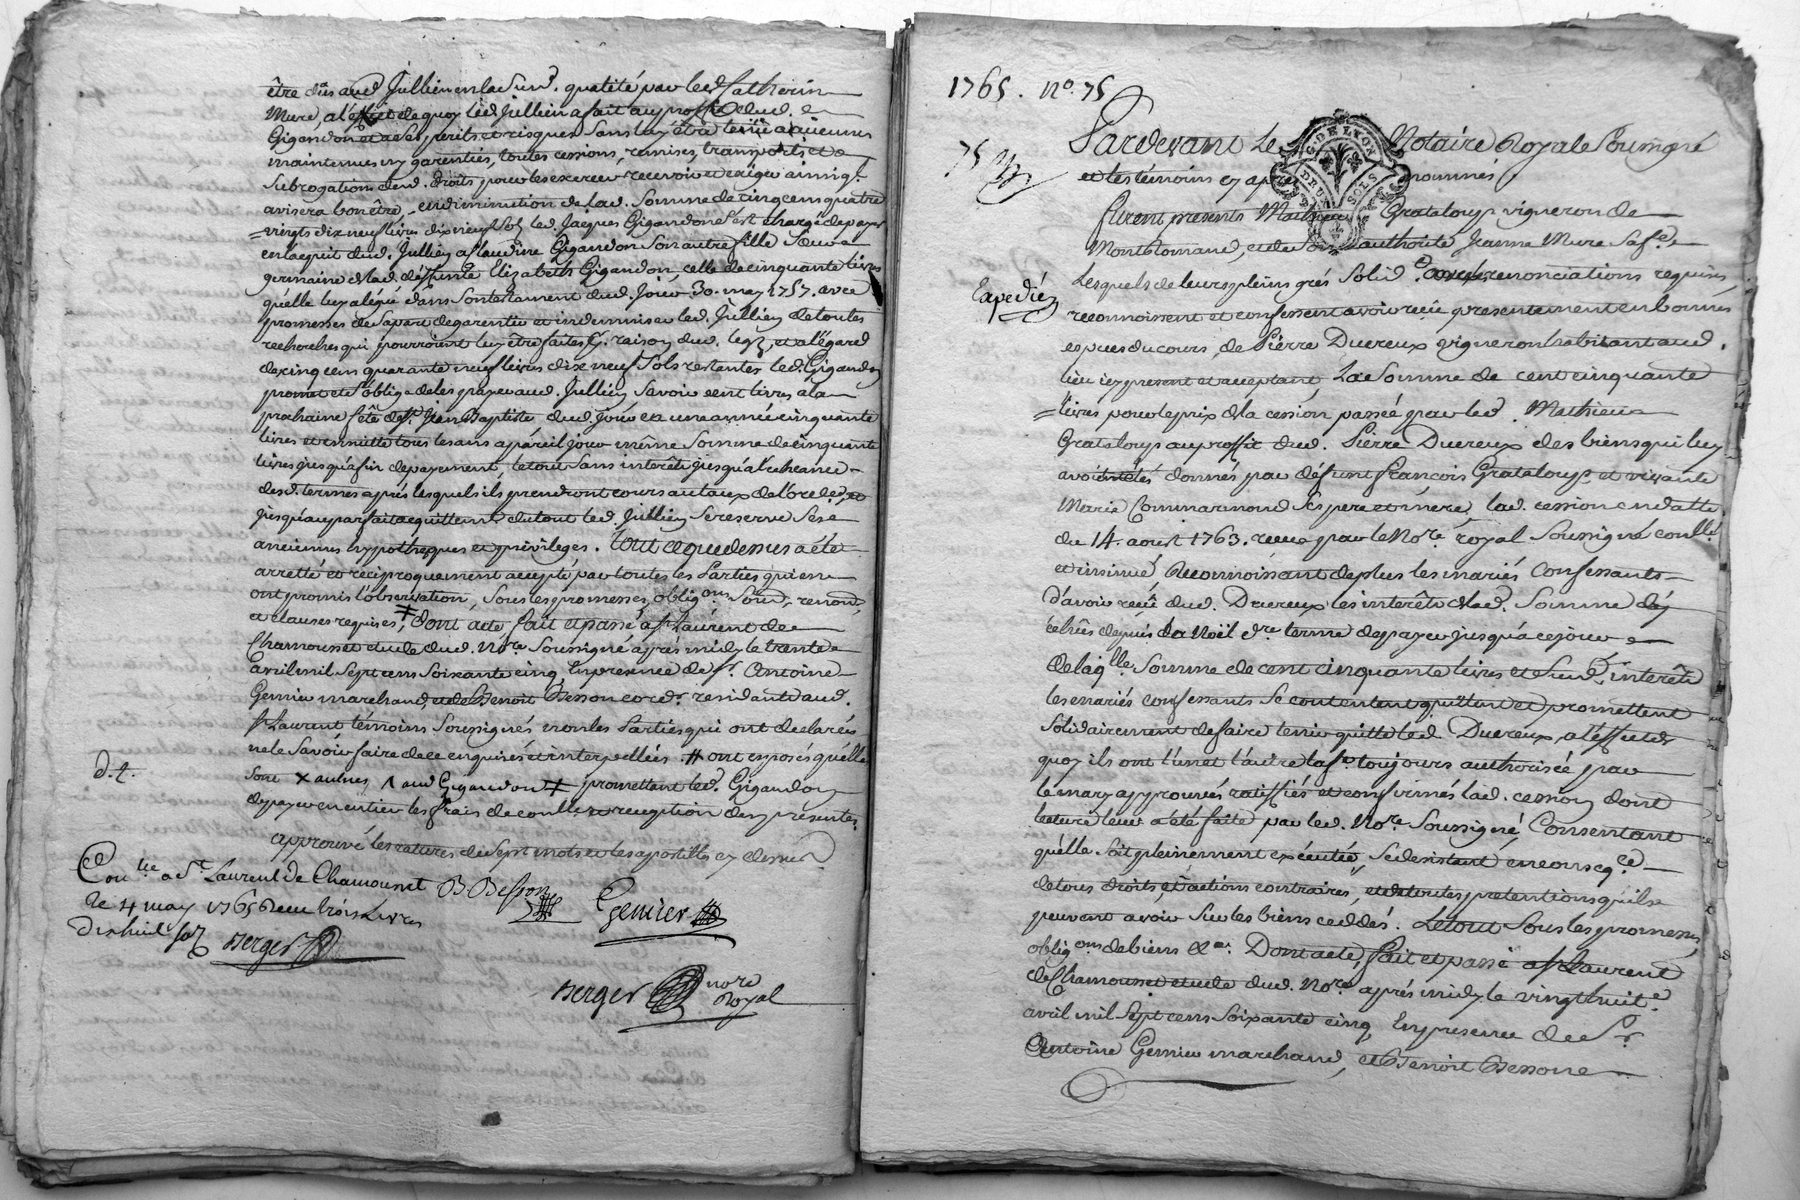 être dûs aud. Jullien en lad. surd. qualité par led. Catherin
Mure, a l'effet de quoy led. Jullien a fait au proffit dud.
Gigandon et a ses perils et risques sans luy être tenu a aucunes
maintenues ny garenties, toutes cessions, remises, transports et
subrogations desd. droits pour les exercer recevoir et exiger ainsy q.
avisera bon être, en diminution de lad. somme de cinq cens quatre
vingts dix neuf livres dix neuf sols led. Jacques Gigandon s'est chargé de payer
en l'acquit dud. Jullien a Claudine Gigandon son autre fille sœur
germaine de lad. deffunte Elizabeth Gigandon, celle de cinquante livres
qu'elle luy a légué dans son testament dud. jour 30. may 1757. avec
promesses de sa part de garentir et indemniser led. Jullien de toutes
recherches qui pourroient luy être faites p. raison dud. legs, et a l'égard
de cinq cens quarante neuf livres dix neuf sols restantes led. Gigandon
promet et s'oblige de les payer aud. Jullien savoir cent livres a la
prochaine fête de St. Jean Baptiste dud. jour en une année cinquante
livres et ensuitte tous les ans a pareil jour même somme de cinquante
livres jusqu'a fin de payement, le tout sans interêts jusqu'a l'echeance
desd. termes après lesquels ils prendront cours au taux de l'ord.
jusqu'au parfait acquittement du tout led. Jullien se reserve ses
anciennes hypothèques et privileges. Tout ce que dessus a été
arretté et reciproquement accepté par toutes les parties qui en
ont promis l'observation, sous les promesses, obligons. soûm. renon.
et clauses requises, ‡ dont acte fait et passé a St. Laurent de
Chamousset etude dud. Nore. soussigné après midy le trente
avril mil sept cens soixante cinq, en presence de Sr. Antoine
Gemier marchand, et de Benoit Besson cord. residants aud.
St. Laurent témoins soussignés non les parties qui ont declaré
ne le savoir faire de ce enquises et interpellées. # ont exposés qu'elle
sont × aulnes ∧ aud Gigandon ‡ promettant led. Gigandon
de payer en entier les frais de conlle. et reception des presentes.
approuvé les ratures de sept mots et les apostilles cy dessus
d. t.
Conlle a St. Laurent de Chamousset
le 4 may 1765 Receu trois Livres
dix huit sols Berger
B. Besson
Gemier
Berger nore
Royal
1765. No. 75
75
Pardevant Le Notaire Royale Soussigné
et les témoins cy après nommés
GDE LYON
DEUX SOLS
furent presents Mathieu Grataloup vigneron de
Montromand, et de son authorité Jeanne Mure sa fe.
Expedié
Lesquels de leurs pleins grés solid. avec les renonciations requises
reconnoissent et confessent avoir reçu presentement en bonnes
especes du cours, de Pierre Ducreux vigneron habitant aud.
lieu icy present et acceptant, La somme de cent cinquante
livres pour le prix de la cession passée par led. Mathieu
Grataloup au proffit dud. Pierre Ducreux des biens qui luy
avoient étés donnés par défunt François Grataloup et vivante
Marie Commarmond ses pere et mère, lad. cession en datte
du 14. aoust 1763. recue par le Nore. royal soussigné conllé
et insinué Reconnoissant de plus les mariés confessants
d'avoir reçû dud. Ducreux les interêts de lad. somme dés
echûs depuis la Noël dre terme de payer jusqu'a ce jour
de laqlle. somme de cent cinquante livres et desd. interêts
les mariés confessants se contentent quittent et promettent
solidairement de faire tenir quitte led. Ducreux, a l'effet de
quoy ils ont l'un et l'autre lad. fe. toujours authorisée par
le mary approuvés ratiffiés et confirmés lad. cession dont
lecture leur a été faite par led. Nore. soussigné, consentant
qu'elle soit pleinement executée, se desistant en consqce.
de tous droits, et actions contraires, et de toutes pretentions qu'ils
peuvent avoir sur les biens cedés. Le tout sous les promesses,
obligons. de biens &a. Dont acte, fait et passé a St. Laurent
de Chamousset etude dud. Nore. après midy le vingt huit
avril mil sept cens soixante cinq, en presence de Sr.
Antoine Gemier marchand, et Benoit Besson